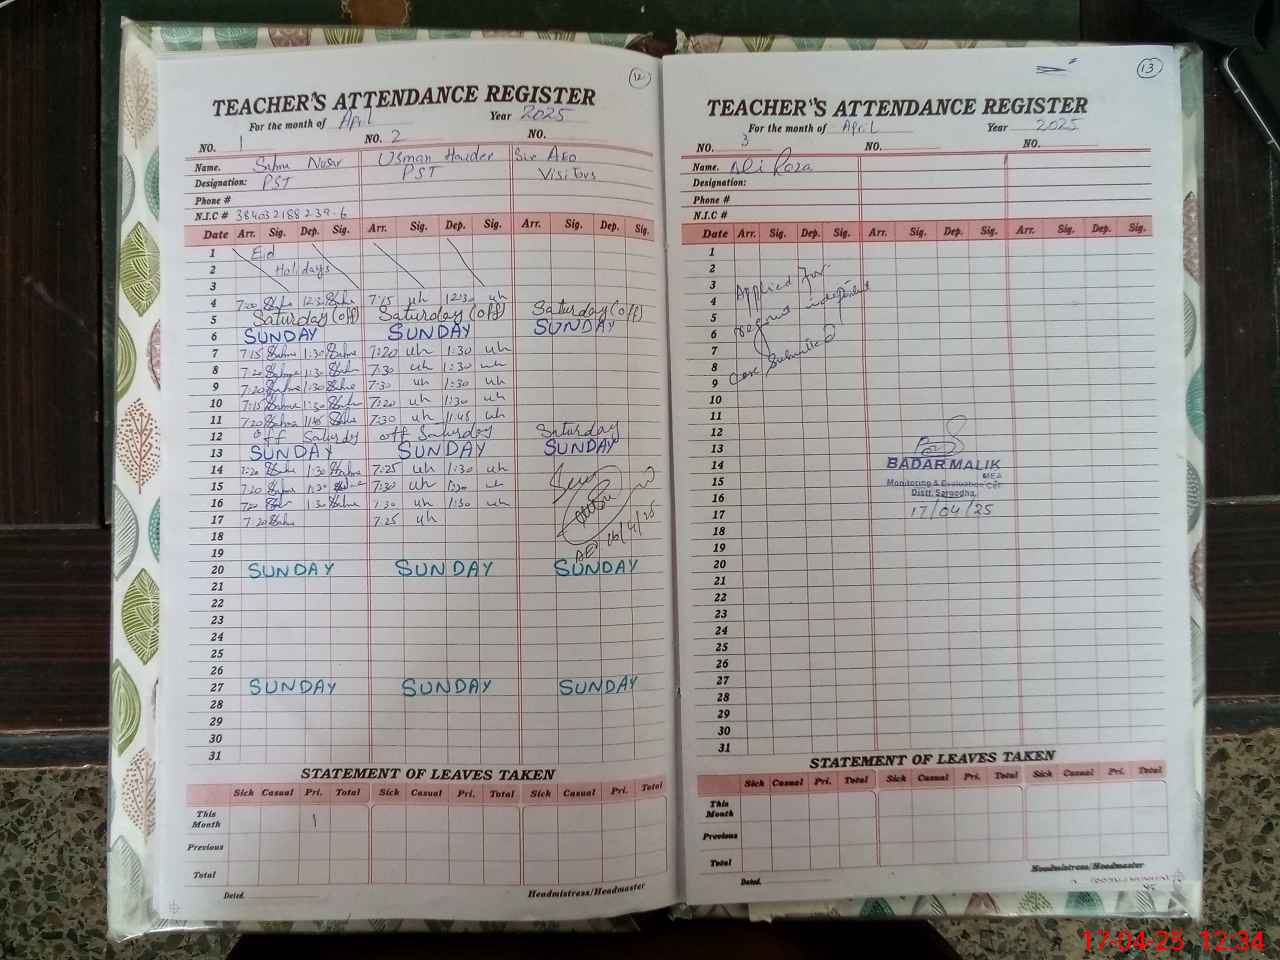 12
TEACHER'S ATTENDANCE REGISTER
For the month of April Year 2025
NO. 1 NO. 2 NO.
Name. Usman Haider
Designation: PST PST Visitors
Phone #
N.I.C # 384032188239-6
Date Arr. Sig. Dep. Sig. Arr. Sig. Dep. Sig. Arr. Sig. Dep. Sig.
1 Eid
2 Holidays
3
4 7:00 12:30 7:15 uh 12:30 uh
5 Saturday (off) Saturday (off) Saturday (off)
6 SUNDAY SUNDAY SUNDAY
7 7:15 1:30 7:20 uh 1:30 uh
8 7:20 1:30 7:30 uh 1:30 uh
9 7:20 1:30 7:30 uh 1:30 uh
10 7:15 1:30 7:20 uh 1:30 uh
11 7:20 1:45 7:30 uh 1:45 uh
12 off Saturday off Saturday Saturday
13 SUNDAY SUNDAY SUNDAY
14 7:20 1:30 7:25 uh 1:30 uh
15 7:20 1:30 7:30 uh 1:30 uh
16 7:20 1:30 7:30 uh 1:30 uh
17 7:20 7:25 uh
18
19
AEO 16/4/25
20 SUNDAY SUNDAY SUNDAY
21
22
23
24
25
26
27 SUNDAY SUNDAY SUNDAY
28
29
30
31
STATEMENT OF LEAVES TAKEN
Sick Casual Pri. Total Sick Casual Pri. Total Sick Casual Pri. Total
This Month 1
Previous
Total
Dated. Headmistress/Headmaster
13
TEACHER'S ATTENDANCE REGISTER
For the month of April Year 2025
NO. 3 NO. NO.
Name. Ali Raza
Designation:
Phone #
N.I.C #
Date Arr. Sig. Dep. Sig. Arr. Sig. Dep. Sig. Arr. Sig. Dep. Sig.
1
2
3 Applied For
4
5
6
7
8 Case Submitted
9
10
11
12
13
14 BADAR MALIK
MEA
15 Monitoring & Evaluation Cell
Distt. Sargodha.
16
17 17/04/25
18
19
20
21
22
23
24
25
26
27
28
29
30
31
STATEMENT OF LEAVES TAKEN
Sick Casual Pri. Total Sick Casual Pri. Total Sick Casual Pri. Total
This Month
Previous
Total
Dated. Headmistress/Headmaster
17-04-25 12:34